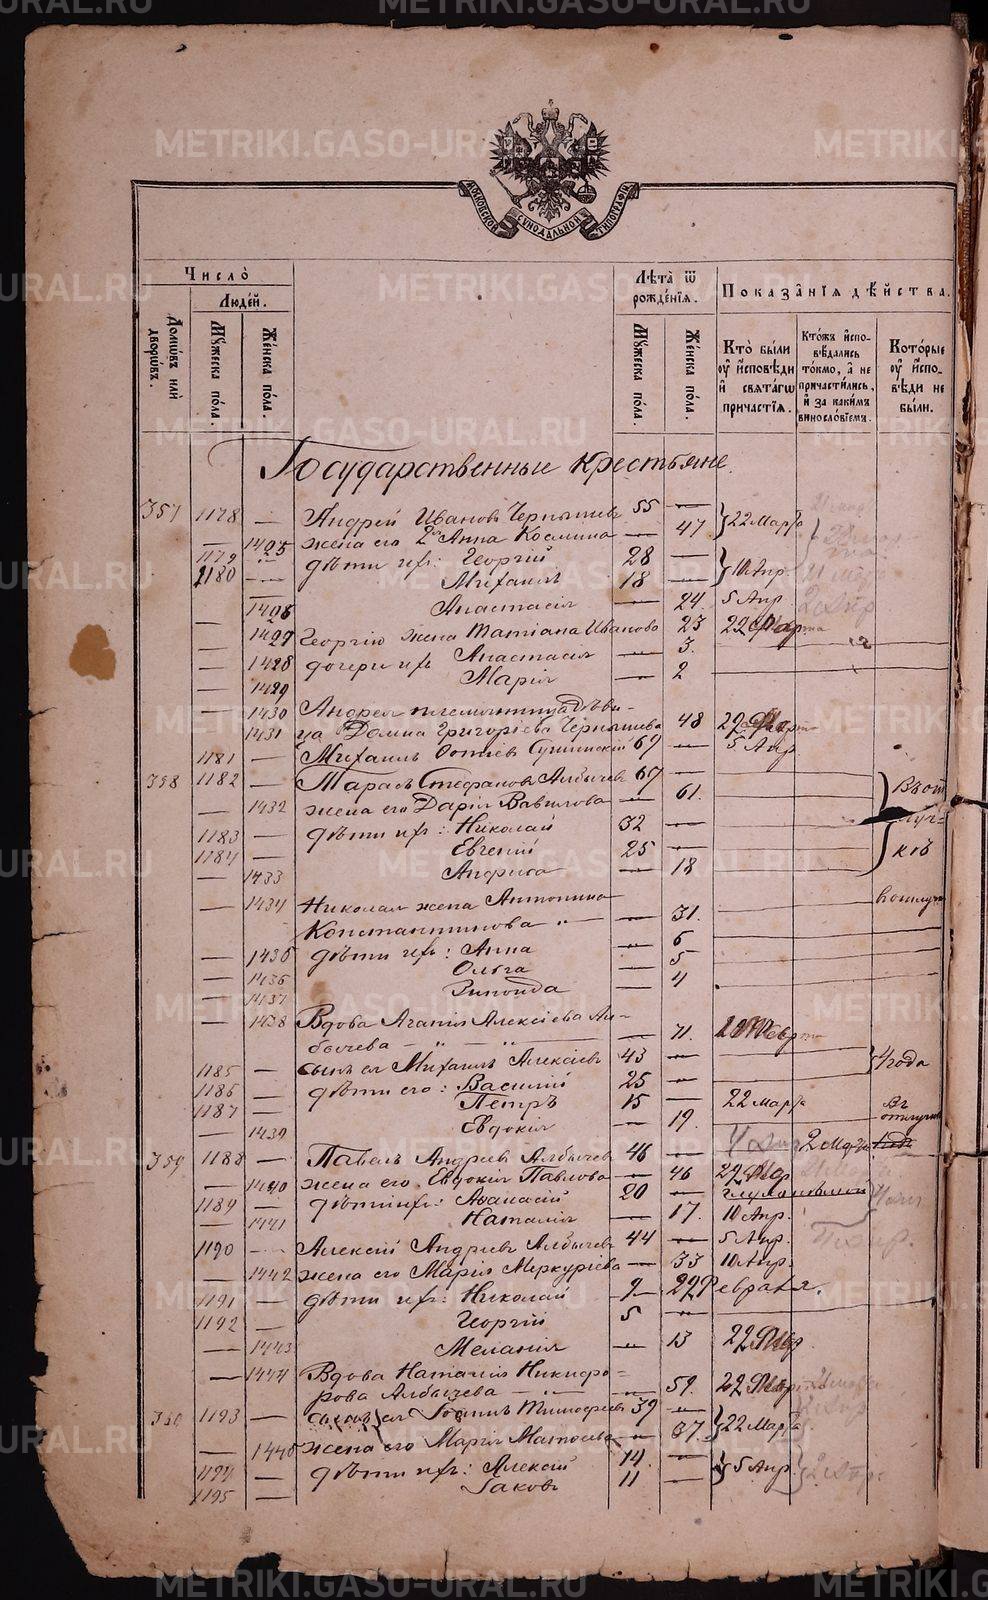 МОСКОВСКОЙ СѴНОДАЛЬНОЙ ТИПОГРАФІИ
Число̀
Людей.
Лѣта ѿ рожденїѧ.
Показанїѧ дѣйства.
Домѡвъ или дворѡвъ.
Мꙋжеска пола.
Женска пола.
Мꙋжеска пола.
Женска пола.
Кто были ᲂу исповѣди и свѧтагѡ причастїѧ.
Ктожъ исповѣдались токмо, а не причастились, и за какимъ винословїемъ.
Которые ᲂу исповѣди не были.
Государственные крестьяне.
357 1178 — Андрей Ивановъ Чернышевъ 55 — 22 Марта
— 1425 жена его 2я Анна Космина — 47
1179 — дѣти ихъ: Георгій 28 — 10 Апр.
1180 — Михаилъ 18 —
— 1426 Анастасія — 24 5 Апр
— 1427 Георгію жена Татіана Иванова 23 22 Марта
— 1428 дочери ихъ Анастасія — 3.
— 1429 Марія — 2
— 1430 Андрея племянница дѣви-
1431 ца Домна Григоріева Чернышева 48
1181 — Михаилъ Сушинскій 69 — 5 Апр.
358 1182 — Тарасъ Стефановъ Албычевъ 67 — Въ от
— 1432 жена его Дарія Вавилова — 61. луч-
1183 — дѣти ихъ: Николай 32 — кѣ
1184 — Евгеній 25 —
— 1433 Анфиса — 18
— 1434 Николая жена Антонина
Константинова — 31.
— 1435 дѣти ихъ: Анна — 6
— 1436 Ольга — 5
— 1437 Зинаида — 4
— 1438 Вдова Агапія Алексіева Ал-
бычева — 71.
1185 — сынъ ея Михаилъ Алексіевъ 43 — 4 года
1186 — дѣти его: Василій 25 —
1187 — Петръ 15 — 22 Марта Въ отлучкѣ
— 1439 Евдокія — 19.
359 1188 — Павелъ Андреевъ Албычевъ 46 —
— 1440 жена его Евдокія Павлова — 46
1189 — дѣти ихъ: Аѳанасій 20 — глухонѣмой
— 1441 Наталія — 17. 10 Апр.
1190 — Алексій Андреевъ Албычевъ 44 — 5 Апр.
— 1442 жена его Марія Меркуріева — 33 10 Апр.
1191 — дѣти ихъ: Николай 9 — 22 Февраля.
1192 — Георгій 5 —
— 1443 Меланія — 13
— 1444 Вдова Наталія Никифо-
рова Албычева — 59.
360 1193 — сынъ ея Тимофеевъ 39 — 22 Марта
— 1445 жена его Марія Матѳеева — 37.
1194 — дѣти ихъ: Алексій 14 — 5 Апр.
1195 — Іаковъ 11 —
METRIKI.GASO-URAL.RU